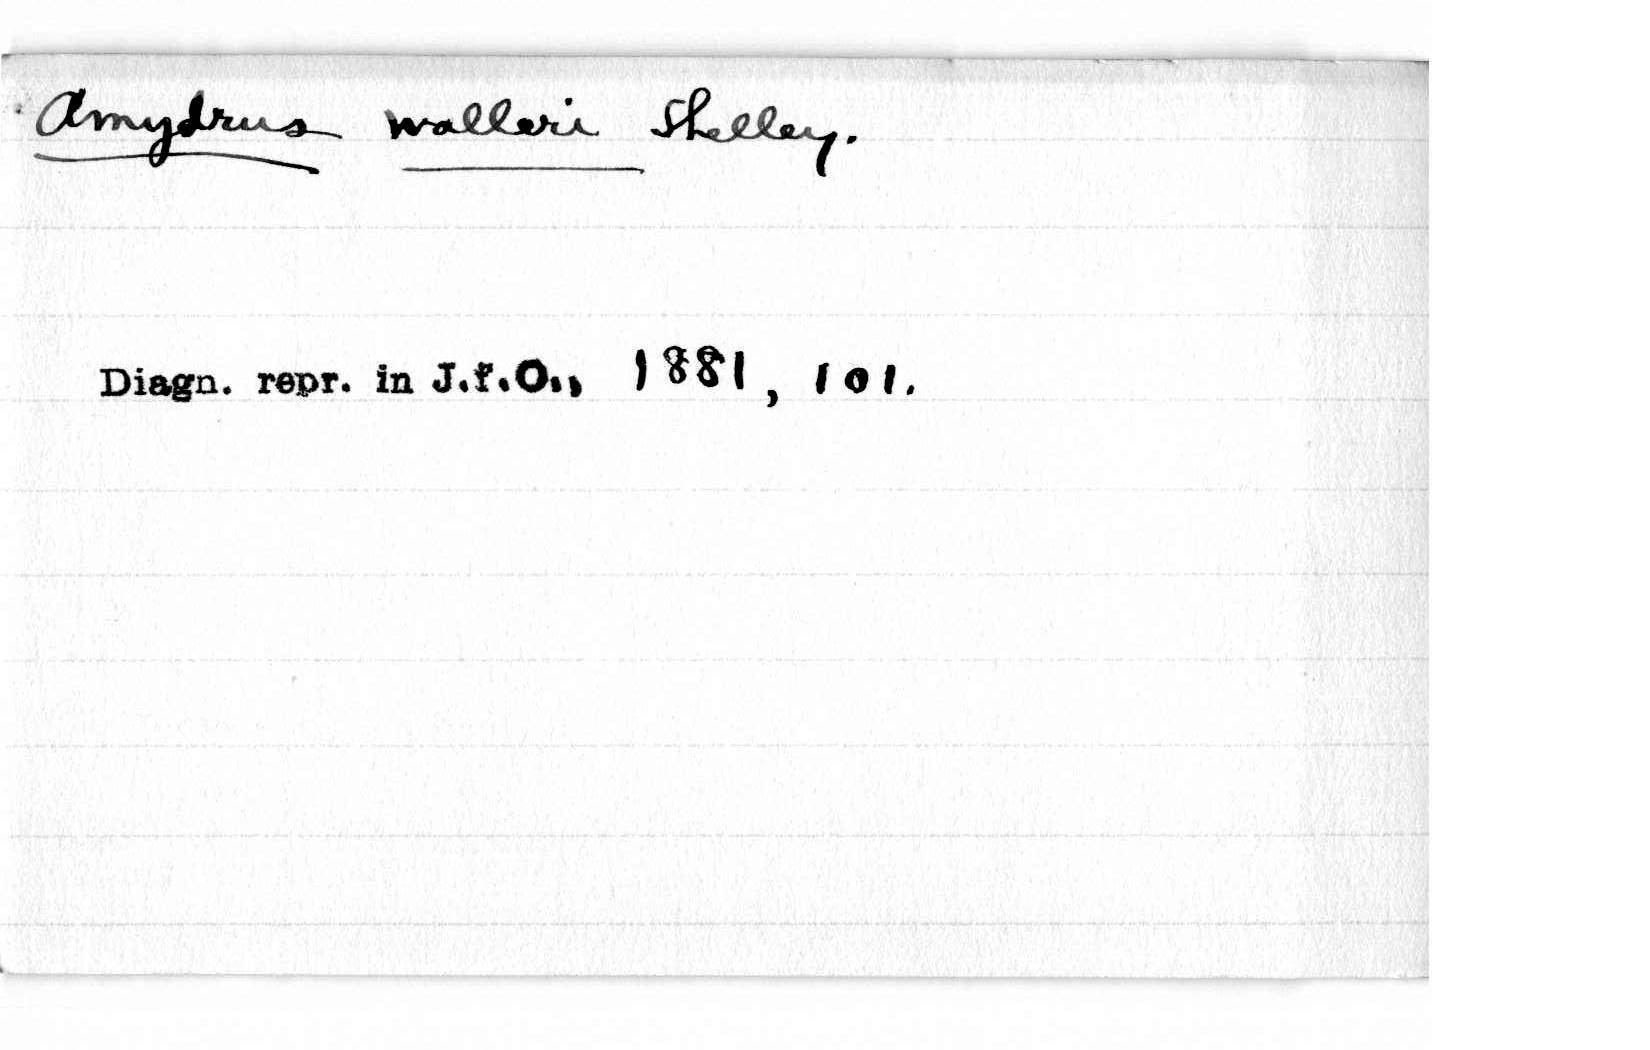 Amydrus walleri Shelley.
Diagn. repr. in J.f.O., 1881, 101.